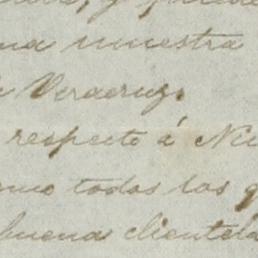 una muestra
Veracruz.
respecto á
como todos los
buena clientela